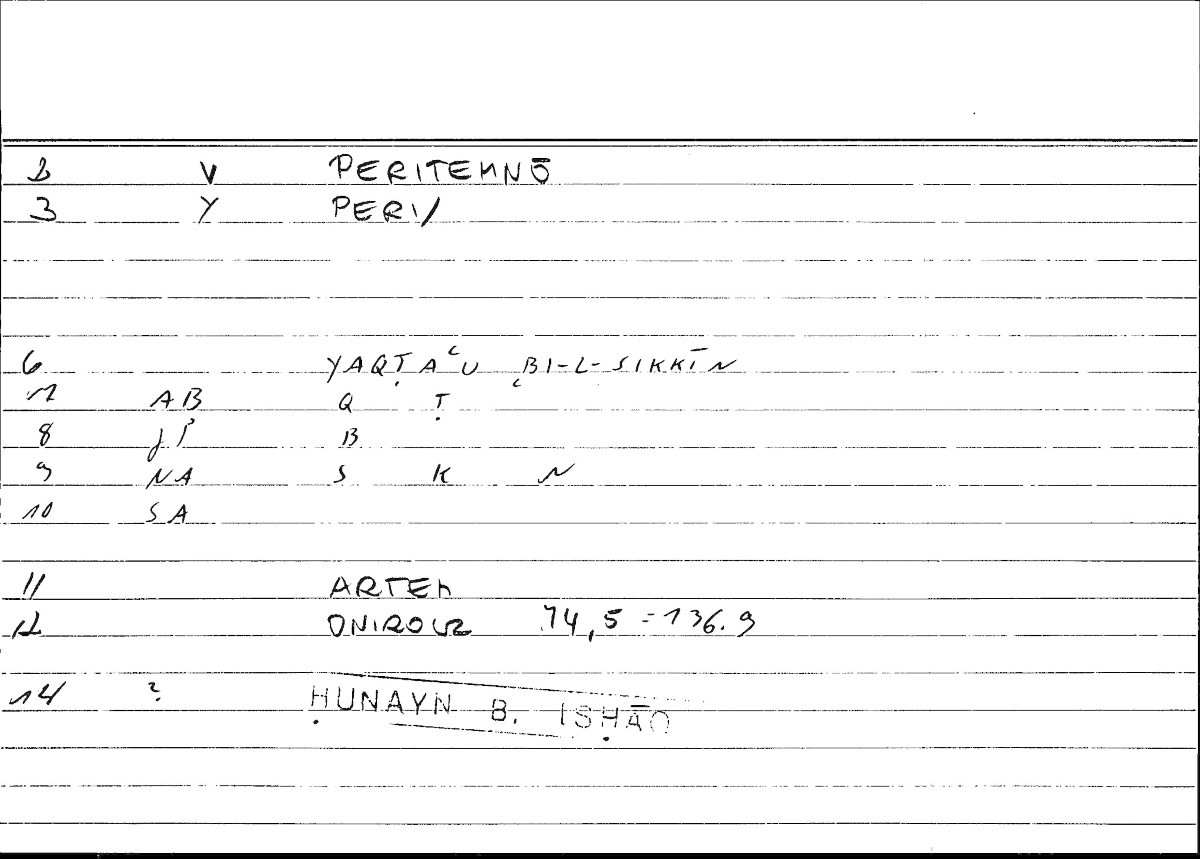 2 V PERITEMNŌ
3 Y PERI/
6 YAQṬAʿU BI-L-SIKKĪN
7 AB Q Ṭ
8 JP B
9 NA S K N
10 SA
11 ARTEM
12 ONIROCR 74,5 = 136.9
14 ? ḤUNAYN B. ISḤĀQ